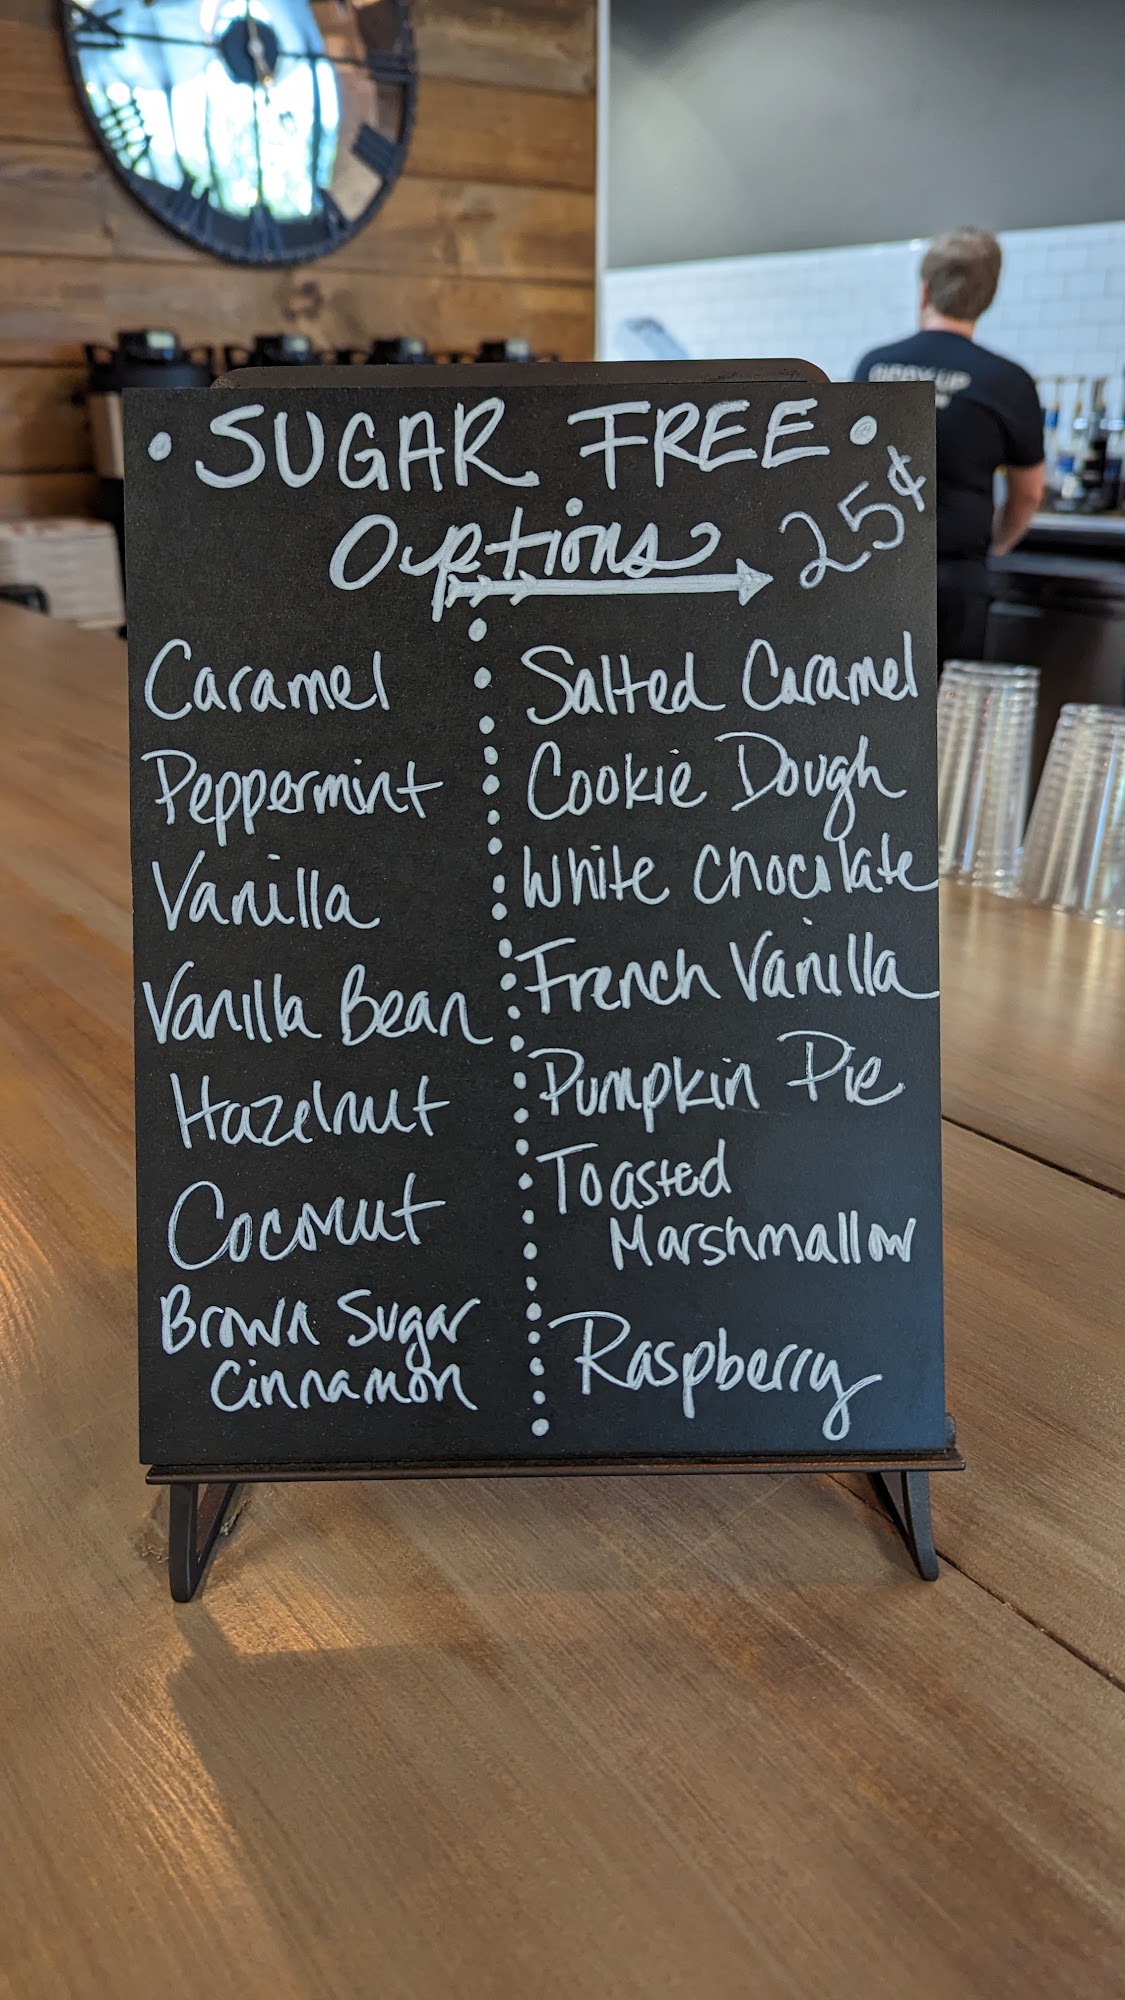 • SUGAR FREE •
Options 25¢
Caramel
Peppermint
Vanilla
Vanilla Bean
Hazelnut
Coconut
Brown Sugar
Cinnamon
Salted Caramel
Cookie Dough
White Chocolate
French Vanilla
Pumpkin Pie
Toasted
Marshmallow
Raspberry